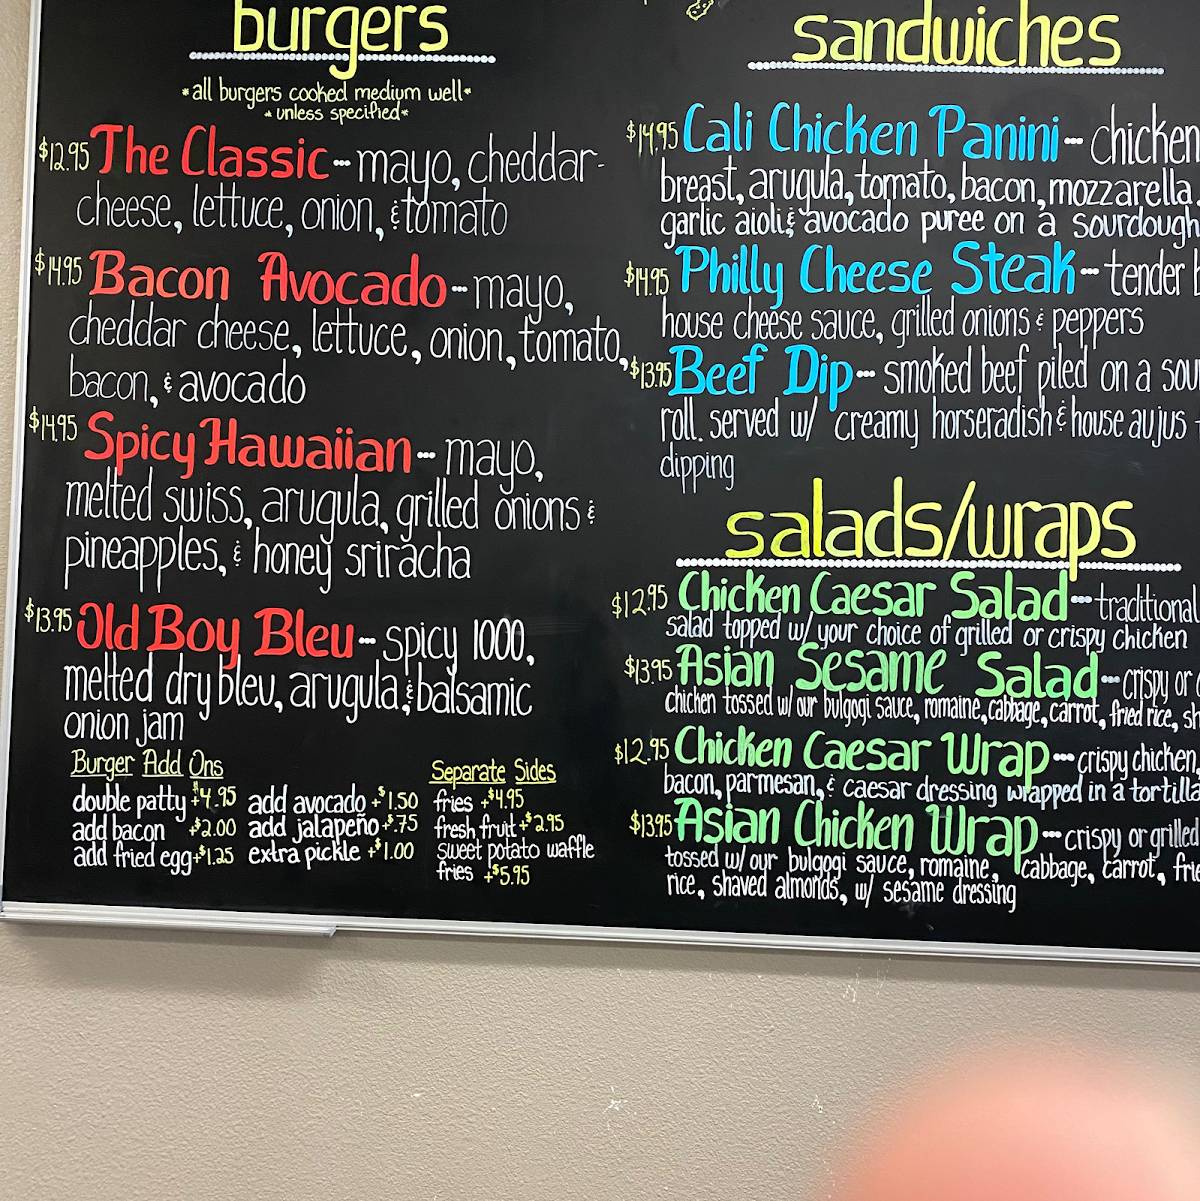 burgers
*all burgers cooked medium well*
*unless specified*
$12.95 The Classic--- mayo, cheddar-
cheese, lettuce, onion, & tomato
$14.95 Bacon Avocado--- mayo,
cheddar cheese, lettuce, onion, tomato,
bacon, & avocado
$14.95 Spicy Hawaiian--- mayo,
melted swiss, arugula, grilled onions &
pineapples, & honey sriracha
$13.95 Old Boy Bleu--- spicy 1000,
melted dry bleu, arugula, & balsamic
onion jam
Burger Add Ons
double patty +$4.95
add bacon +$2.00
add fried egg +$1.25
add avocado +$1.50
add jalapeño +$.75
extra pickle +$1.00
Separate Sides
fries +$4.95
fresh fruit +$2.95
sweet potato waffle
fries +$5.95
sandwiches
$14.95 Cali Chicken Panini--- chicken
breast, arugula, tomato, bacon, mozzarella,
garlic aioli & avocado puree on a sourdough
$14.95 Philly Cheese Steak--- tender
house cheese sauce, grilled onions & peppers
$13.95 Beef Dip--- smoked beef piled on a sou
roll. served w/ creamy horseradish & house aujus
dipping
salads/wraps
$12.95 Chicken Caesar Salad--- traditional
salad topped w/ your choice of grilled or crispy chicken
$13.95 Asian Sesame Salad--- crispy or
chicken tossed w/ our bulgogi sauce, romaine, cabbage, carrot, fried rice, sh
$12.95 Chicken Caesar Wrap--- crispy chicken,
bacon, parmesan, & caesar dressing wrapped in a tortilla
$13.95 Asian Chicken Wrap--- crispy or grilled
tossed w/ our bulgogi sauce, romaine, cabbage, carrot, frie
rice, shaved almonds, w/ sesame dressing